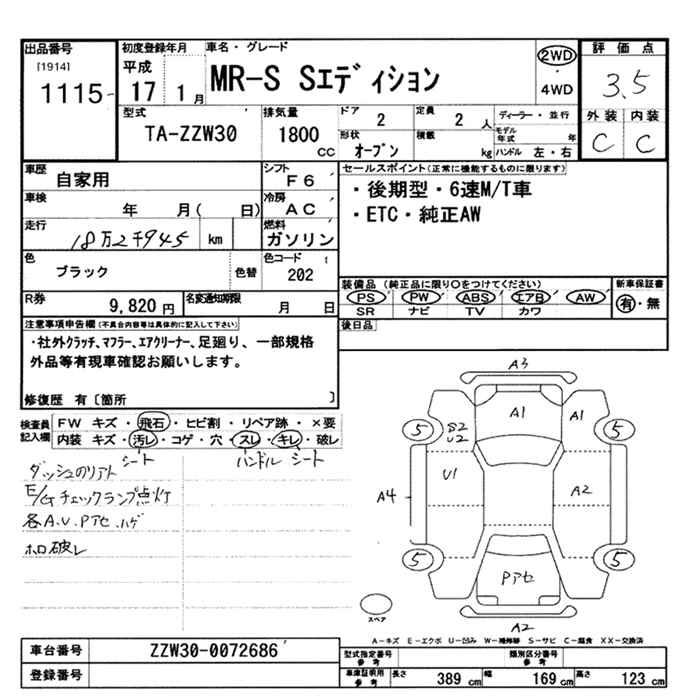 出品番号 初度登録年月 車名・グレード 評価点
[1914] 平成 2WD
1115 17 1月 MR-S Sエディション 4WD 3.5
型式 排気量 ドア 2 定員 2 人 ディーラー・並行 外装 内装
TA-ZZW30 1800 CC 形状 オープン 積載 kg モデル年式 年 ハンドル 左・右 C C
車歴 自家用 シフト F6 セールスポイント(正常に機能するものに限ります)
車検 年 月( 日) 冷房 AC ・後期型・6速M/T車
走行 18万2千945 km 燃料 ガソリン ・ETC・純正AW
色 ブラック 色替 色コード 202
装備品(純正品に限り○をつけてください) 新車保証書
R券 9,820円 名変通知期限 月 日 PS PW ABS エアB AW 有・無
SR ナビ TV カワ
注意事項申告欄(不具合内容等は具体的に記入して下さい) 後日品
・社外クラッチ、マフラー、エアクリーナー、足廻り、一部規格
外品等有現車確認お願いします。
修復歴 有〔箇所 〕
検査員記入欄 FW キズ・飛石・ヒビ割・リペア跡・×要
内装 キズ・汚レ・コゲ・穴・スレ・キレ・破レ
シート ハンドル シート
ダッシュのリアト
E/Gチェックランプ点灯
各A.U.Pアセ.ハゲ
ホロ破レ
A3
A1 A1
5 S2 U2 5
U1
A4 A2
5 5
Pアセ
スペア
A2
A-キズ E-エクボ U-凹み W-補修跡 S-サビ C-腐食 XX-交換済
車台番号 ZZW30-0072686 型式指定番号 参考 類別区分番号 参考
登録番号 車庫証明用 参考 長さ 389 cm 幅 169 cm 高さ 123 cm